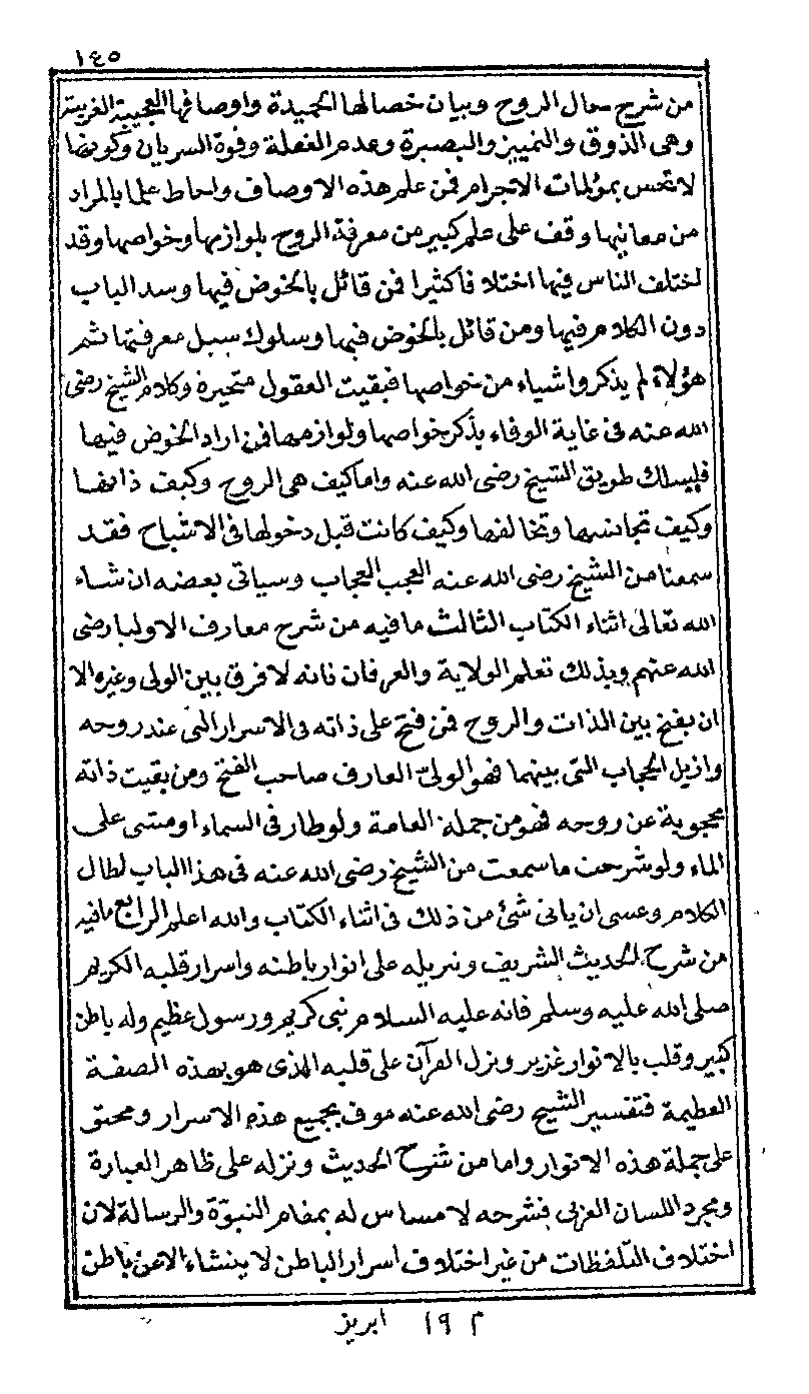 ١٤٥
من شرح حال الروح وبيان خصالها الحميدة واوصافها العجيبة الغريبة
وهى الذوق والتمييز والبصيرة وعدم الغفلة وقوة السريان وكونها
لا تحس بمؤلمات الاجرام فمن علم هذه الاوصاف واحاط علما بالمراد
من معانيها وقف على علم كبير من معرفة الروح بلوازمها وخواصها وقد
اختلف الناس فيها اختلافا كثيرا فمن قائل بالخوض فيها وسد الباب
دون الكلام فيها ومن قائل بالخوض فيها وسلوك سبيل معرفتها ثم
هؤلاء لم يذكروا اشياء من خواصها فبقيت العقول متحيرة وكلام الشيخ رضى
الله عنه فى غاية الوفاء بذكر خواصها ولوازمها فمن اراد الخوض فيها
فليسلك طريق الشيخ رضى الله عنه واما كيف هى الروح وكيف ذاتها
وكيف تجانسها وتخالفها وكيف كانت قبل دخولها فى الاشباح فقد
سمعنا من الشيخ رضى الله عنه العجب العجاب وسياتى بعضه ان شاء
الله تعالى اثناء الكتاب الثالث ما فيه من شرح معارف الاوليا رضى
الله عنهم وبذلك تعلم الولاية والعرفان فانه لا فرق بين الولى وغيره الا
ان يفتح بين الذات والروح فمن فتح على ذاته فى الاسرار التى عند روحه
وازيل الحجاب التى بينهما فهو الولىّ العارف صاحب الفتح ومن بقيت ذاته
محجوبة عن روحه فهو من جملة العامة ولو طار فى السماء او مشى على
الماء ولو شرحت ما سمعت من الشيخ رضى الله عنه فى هذا الباب لطال
الكلام وعسى ان ياتى شئ من ذلك فى اثناء الكتاب والله اعلم الرابع ما فيه
من شرح الحديث الشريف وتنزيله على انوار باطنه واسرار قلبه الكريم
صلى الله عليه وسلم فانه عليه السلام نبى كريم ورسول عظيم وله باطن
كبير وقلب بالانوار غزير ونزل القرآن على قلبه الذى هو بهذه الصفة
العظيمة فتفسير الشيخ رضى الله عنه موف بجميع هذه الاسرار ومحتو
على جملة هذه الانوار واما من شرح الحديث ونزله على ظاهر العبارة
ومجرد اللسان العربى فشرحه لا مساس له بمقام النبوّة والرسالة لان
اختلاف التلفظات من غير اختلاف اسرار الباطن لا ينشاء الا عن باطن
م ١٩ ابريز